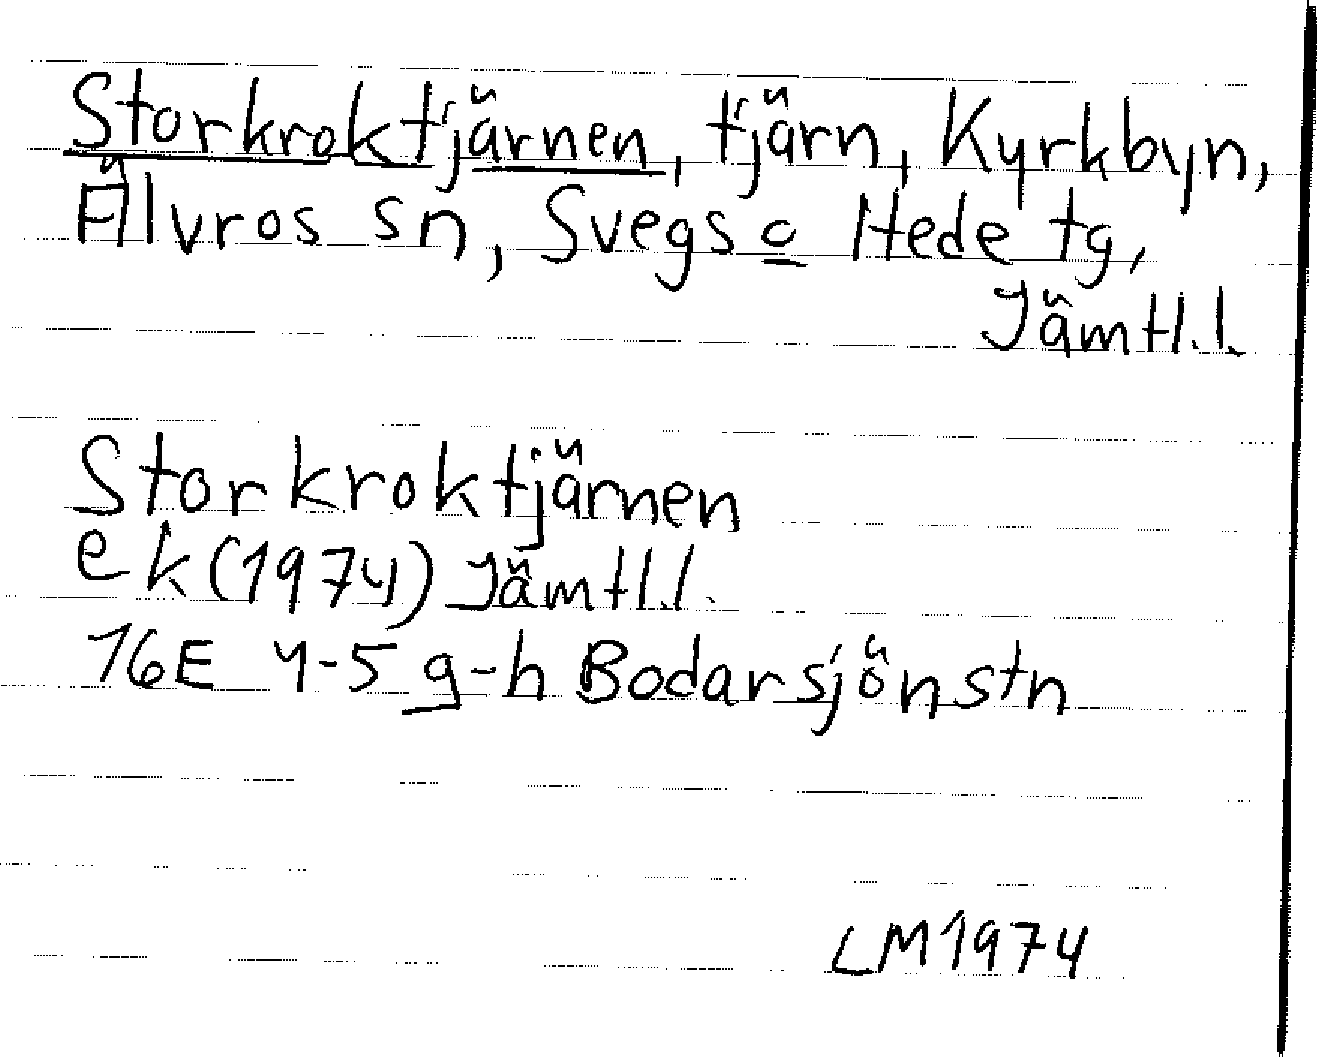 Storkroktjärnen, tjärn, Kyrkbyn,
Älvros sn, Svegs o Hede tg,
Jämtl.l.
Storkroktjärnen
ek (1974) Jämtl.l.
16E 4-5 g-h Bodarsjönstn
LM 1974